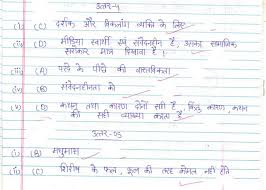 उत्तर-4
(i) (C) दर्शक और विकलांग व्यक्ति के लिए
(ii) (D) मीडिया स्वार्थी एवं संवेदनहीन है, उसका सामाजिक
सरोकार मात्र दिखावा है।
(iii) (A) परदे के पीछे की वास्तविकता
(iv) (B) संवेदनहीनता को
(v) (D) कथन तथा कारण दोनों सही हैं, किंतु कारण, कथन
की सही व्याख्या करता है
उत्तर-05
(i) (B) मधुमास
(ii) (C) शिरीष के फल, फूल की तरह कोमल नहीं होते